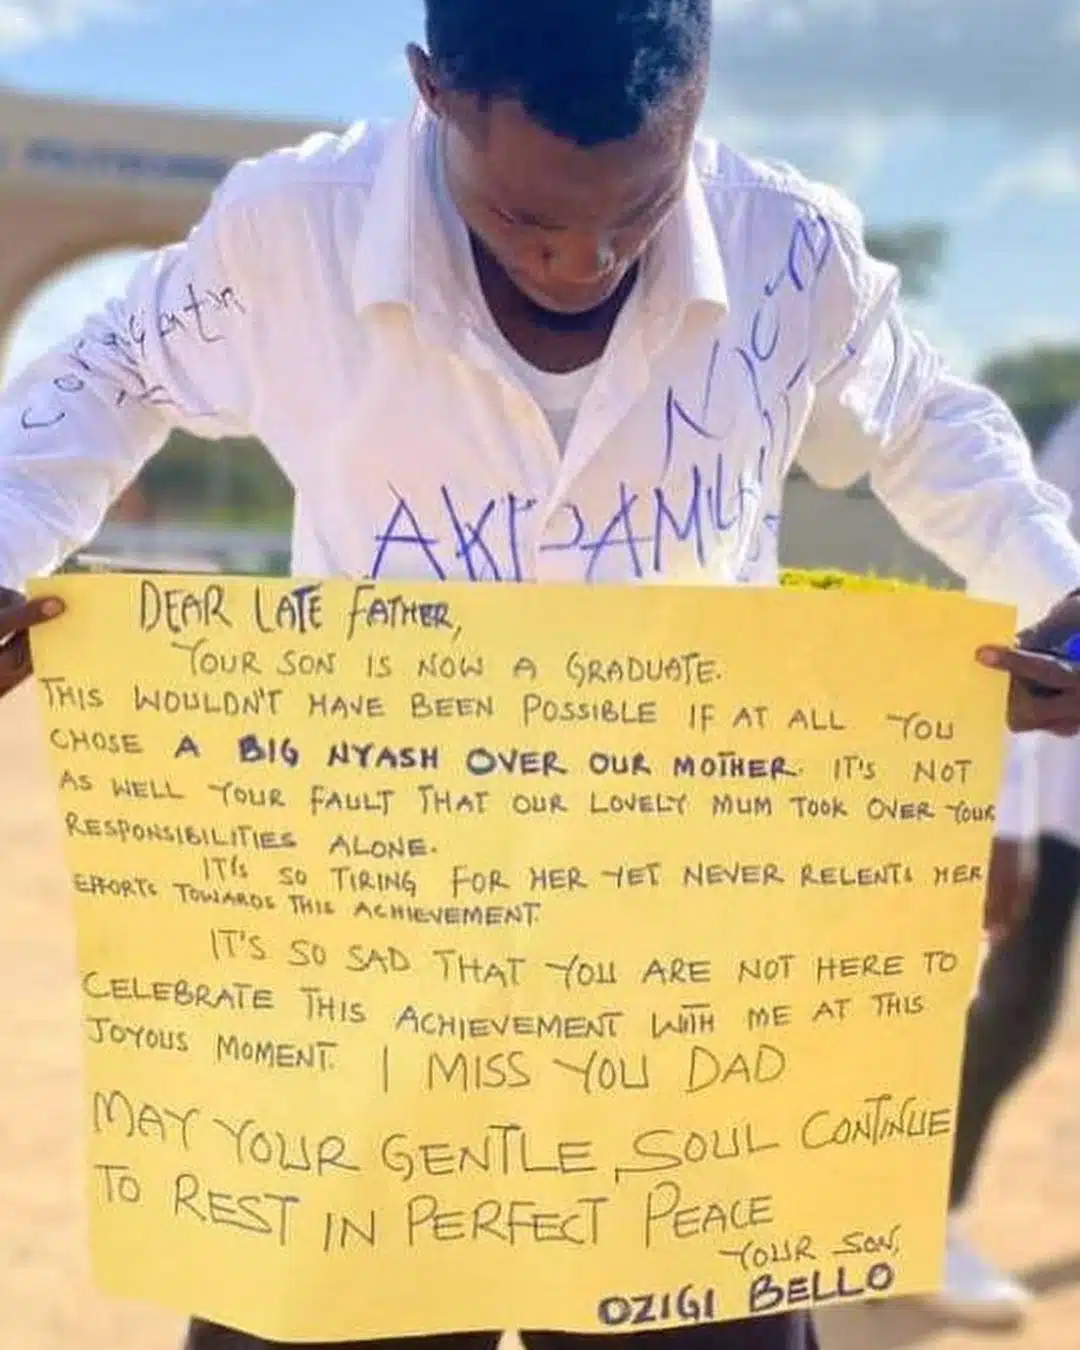 Congratn
NICE
AKPAMU
DEAR LATE FATHER,
YOUR SON IS NOW A GRADUATE.
THIS WOULDN'T HAVE BEEN POSSIBLE IF AT ALL YOU
CHOSE A BIG NYASH OVER OUR MOTHER. IT'S NOT
AS WELL YOUR FAULT THAT OUR LOVELY MUM TOOK OVER YOUR
RESPONSIBILITIES ALONE.
IT'S SO TIRING FOR HER YET NEVER RELENTS HER
EFFORTS TOWARDS THIS ACHIEVEMENT.
IT'S SO SAD THAT YOU ARE NOT HERE TO
CELEBRATE THIS ACHIEVEMENT WITH ME AT THIS
JOYOUS MOMENT. I MISS YOU DAD
MAY YOUR GENTLE SOUL CONTINUE
TO REST IN PERFECT PEACE
YOUR SON,
OZIGI BELLO